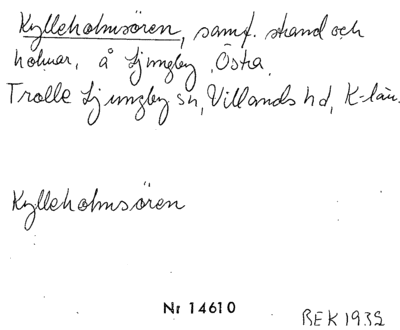 Kylleholmsören, samf. strand och
holmar, å Ljungby, Östra.
Trolle Ljungby sn, Villands hd, K-län.
Kylleholmsören
Nr 14610
BEK 1932